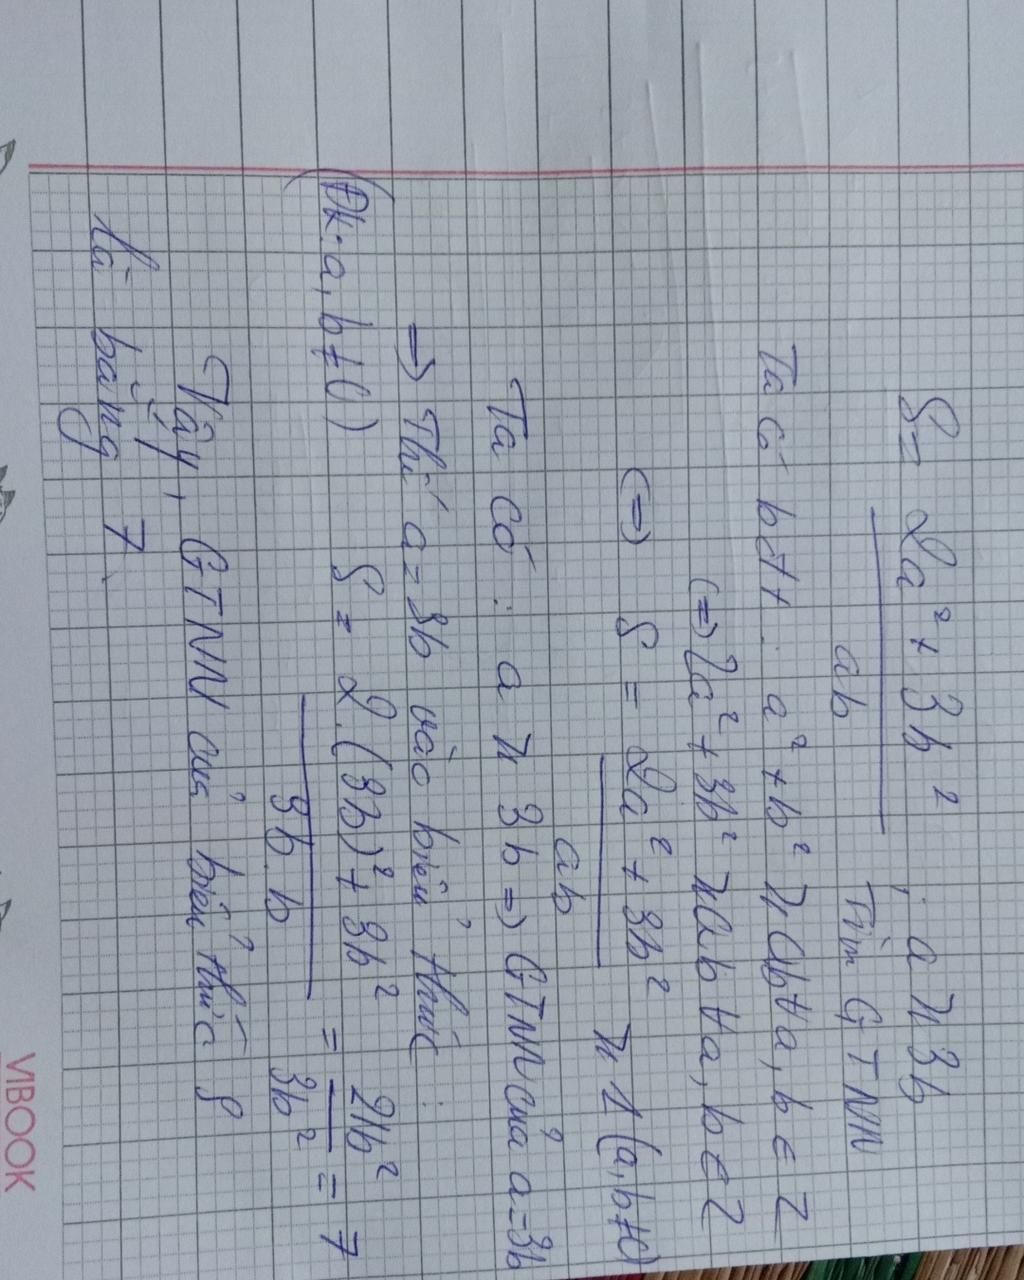 S = 2a² + 3b² ; a ≥ 3b
ab Tìm GTNN
Ta có bđt: a² + b² ≥ ab ∀ a, b ∈ Z
(=) 2a² + 3b² ≥ ab ∀ a, b ∈ Z
(=) S = 2a² + 3b² ≥ 1 (a, b ≠ 0)
ab
Ta có: a ≥ 3b => GTNN của a = 3b
=> Thế a = 3b vào biểu thức:
(Đk: a, b ≠ 0) S = 2.(3b)² + 3b² = 21b² = 7
3b.b 3b²
Vậy, GTNN của biểu thức S
là bằng 7.
VIBOOK